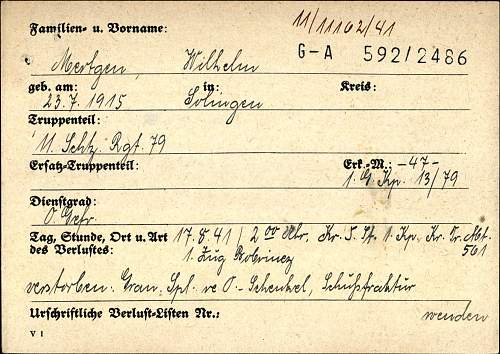 Familien- u. Vorname: 11/11162/41
G-A 592/2486
Mertgen, Wilhelm
geb. am: in: Kreis:
23.7.1915 Solingen
Truppenteil:
11. Schtz. Rgt. 79
Ersatz-Truppenteil: Erk.-M.: -47-
1. G. Kp. 13/79
Dienstgrad:
O. Gefr.
Tag, Stunde, Ort u. Art 17.8.41 / 2 00 Uhr, Kr. 1. Kp. Kr. Tr. Abt. 561
des Verlustes: 1. Zug
verstorben. Gran. Spl. re O.-Schenkel, Schußfraktur
Urschriftliche Verlust-Listen Nr.: wenden
V 1